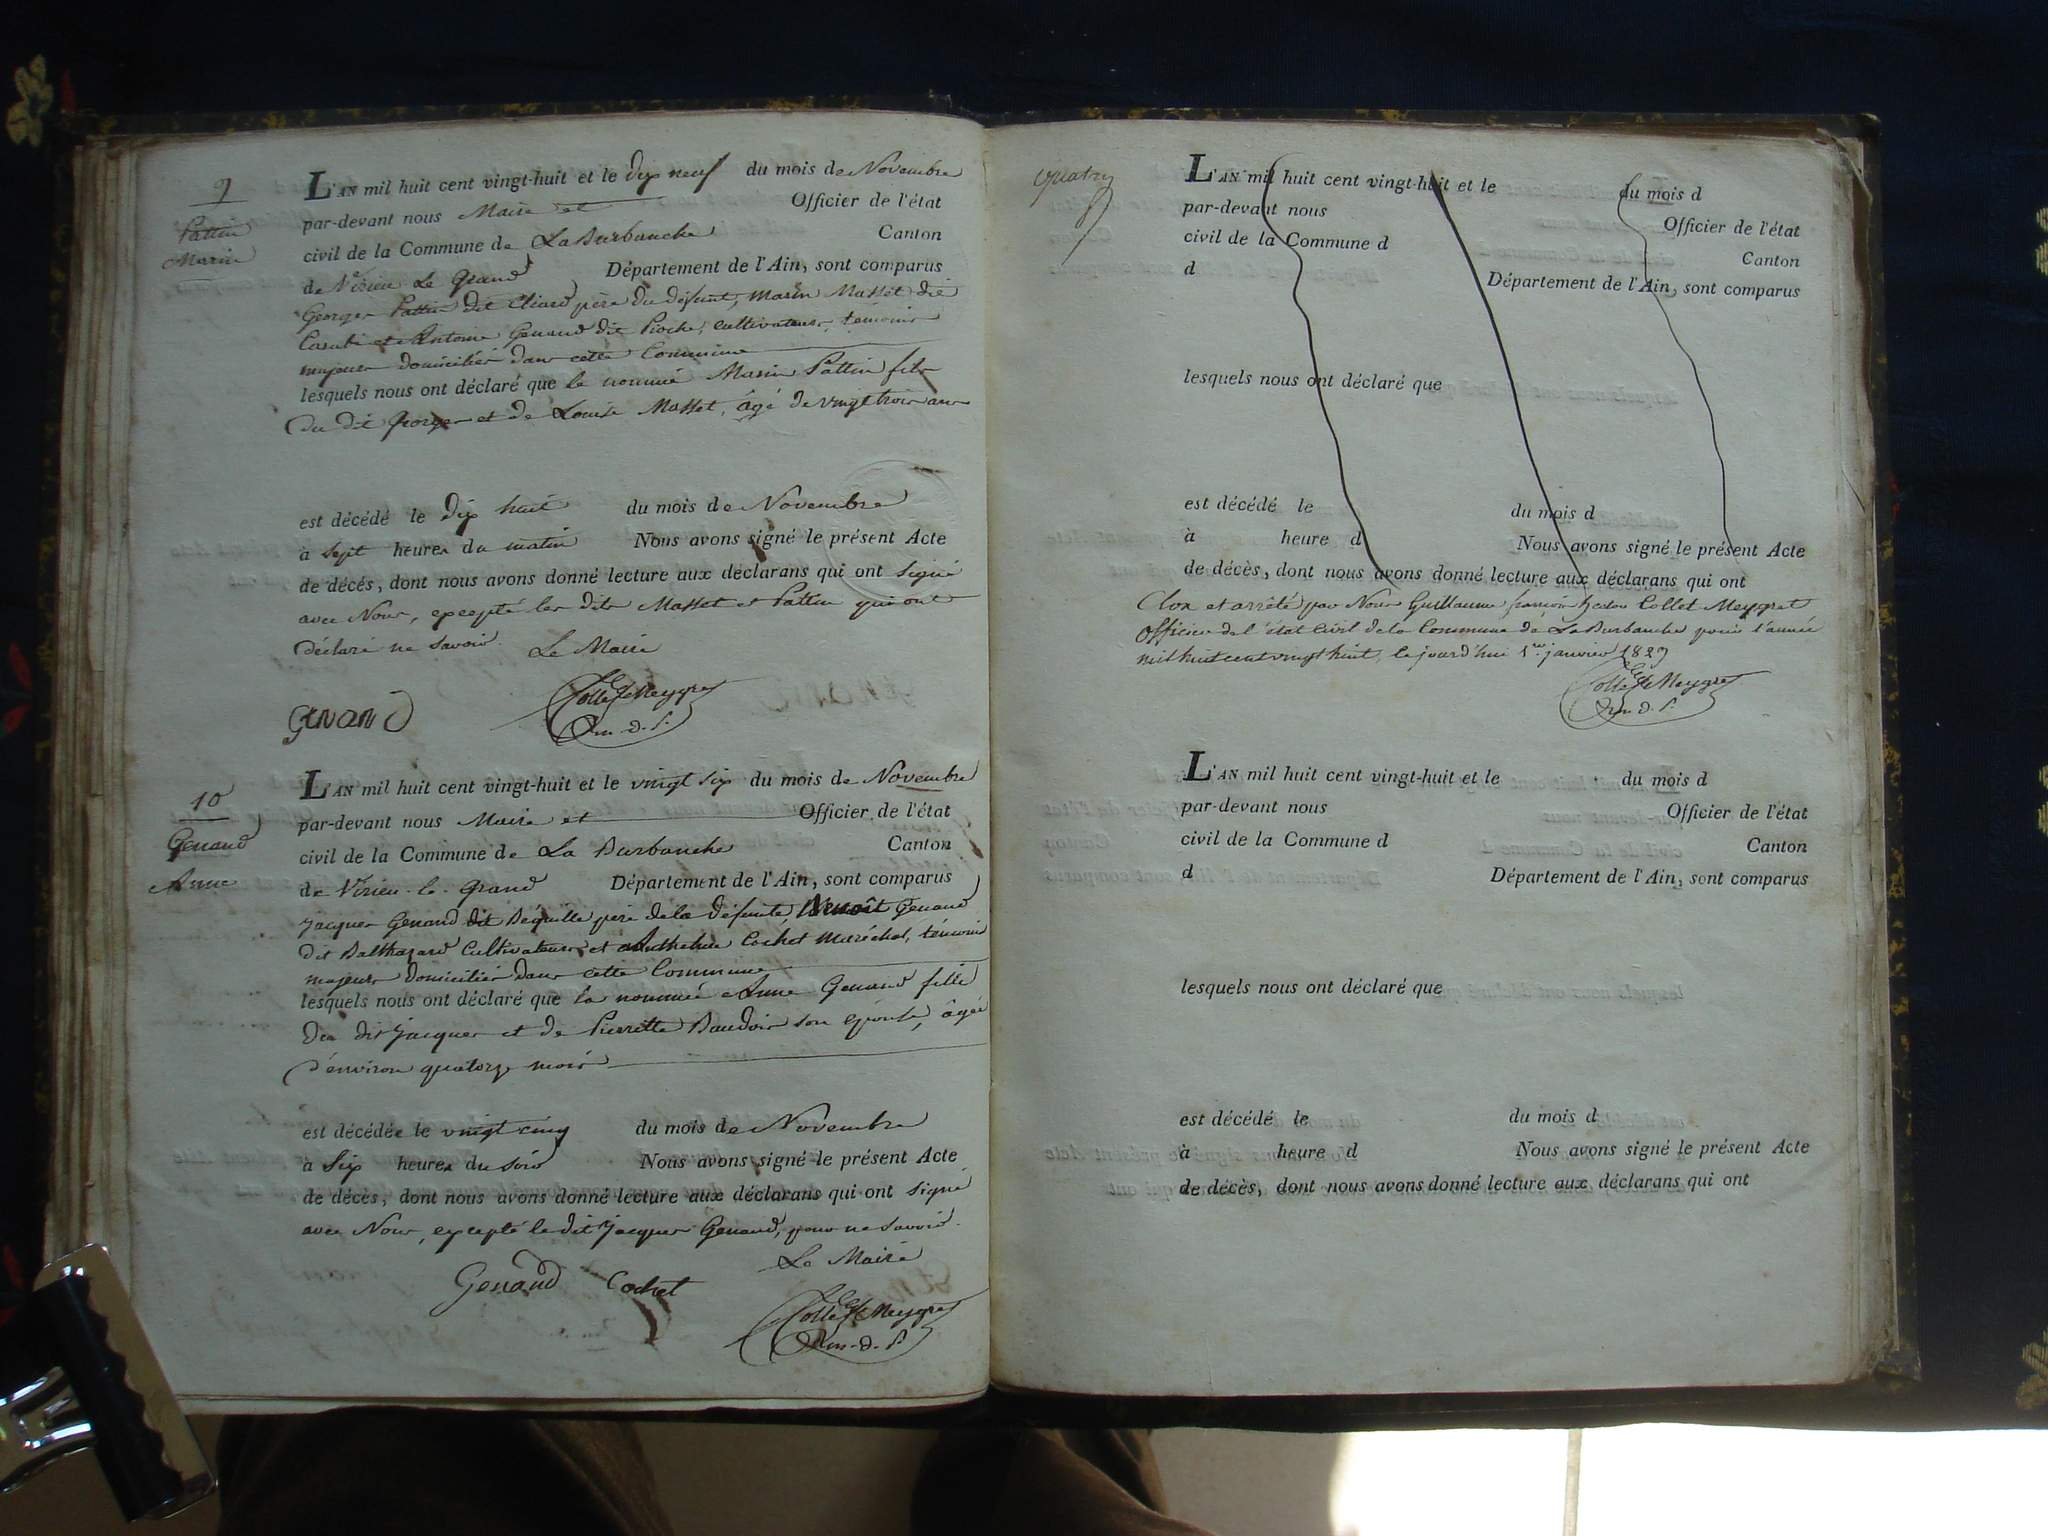 9
Pattin
Marin
L'AN mil huit cent vingt-huit et le dix neuf du mois de Novembre
par-devant nous Maire et Officier de l'état
civil de la Commune de La Burbanche Canton
de Virieu Le Grand Département de l'Ain, sont comparus
Georges Pattin dit Cliard père du défunt, Marin Masset dit
et Antoine Genand dit Pioche, cultivateurs, temoins
majeurs domiciliés dans cette Commune
lesquels nous ont déclaré que le nommé Marin Pattin fils
du dit Georges et de Louise Masset, âgé de vingt trois ans
est décédé le dix huit du mois de Novembre
à sept heures du matin Nous avons signé le présent Acte
de décès, dont nous avons donné lecture aux déclarans qui ont signé
avec Nous, excepté les dits Masset et Pattin qui ont
déclaré ne savoir. Le Maire
GENAND Collet Meygret
10
Genand
Anne
L'AN mil huit cent vingt-huit et le vingt six du mois de Novembre
par-devant nous Maire et Officier de l'état
civil de la Commune de La Burbanche Canton
de Virieu-le-Grand Département de l'Ain, sont comparus
Jacques Genand dit Béquille père de la défunte, Benoît Genand
dit Balthazard Cultivateurs et Anthelme Cochet Maréchal, témoins
majeurs domiciliés dans cette Commune
lesquels nous ont déclaré que la nommée Anne Genand fille
du dit Jacques et de Pierrette Baudoin son épouse, âgée
d'environ quatorze mois
est décédée le vingt cinq du mois de Novembre
à Six heures du soir Nous avons signé le présent Acte
de décès, dont nous avons donné lecture aux déclarans qui ont signé
avec Nous, excepté le dit Jacques Genand, pour ne savoir.
Le Maire
Genand Cochet
Collet Meygret
quatre
L'AN mil huit cent vingt-huit et le du mois d
par-devant nous Officier de l'état
civil de la Commune d Canton
d Département de l'Ain, sont comparus
lesquels nous ont déclaré que
est décédé le du mois d
à heure d Nous avons signé le présent Acte
de décès, dont nous avons donné lecture aux déclarans qui ont
Clos et arrêté par Nous Guillaume Collet Meygret
Officier de l'état Civil de la Commune de La Burbanche pour l'année
mil huit cent vingt huit, le jourd'hui 1er janvier 1829
Collet Meygret
L'AN mil huit cent vingt-huit et le du mois d
par-devant nous Officier de l'état
civil de la Commune d Canton
d Département de l'Ain, sont comparus
lesquels nous ont déclaré que
est décédé le du mois d
à heure d Nous avons signé le présent Acte
de décès, dont nous avons donné lecture aux déclarans qui ont